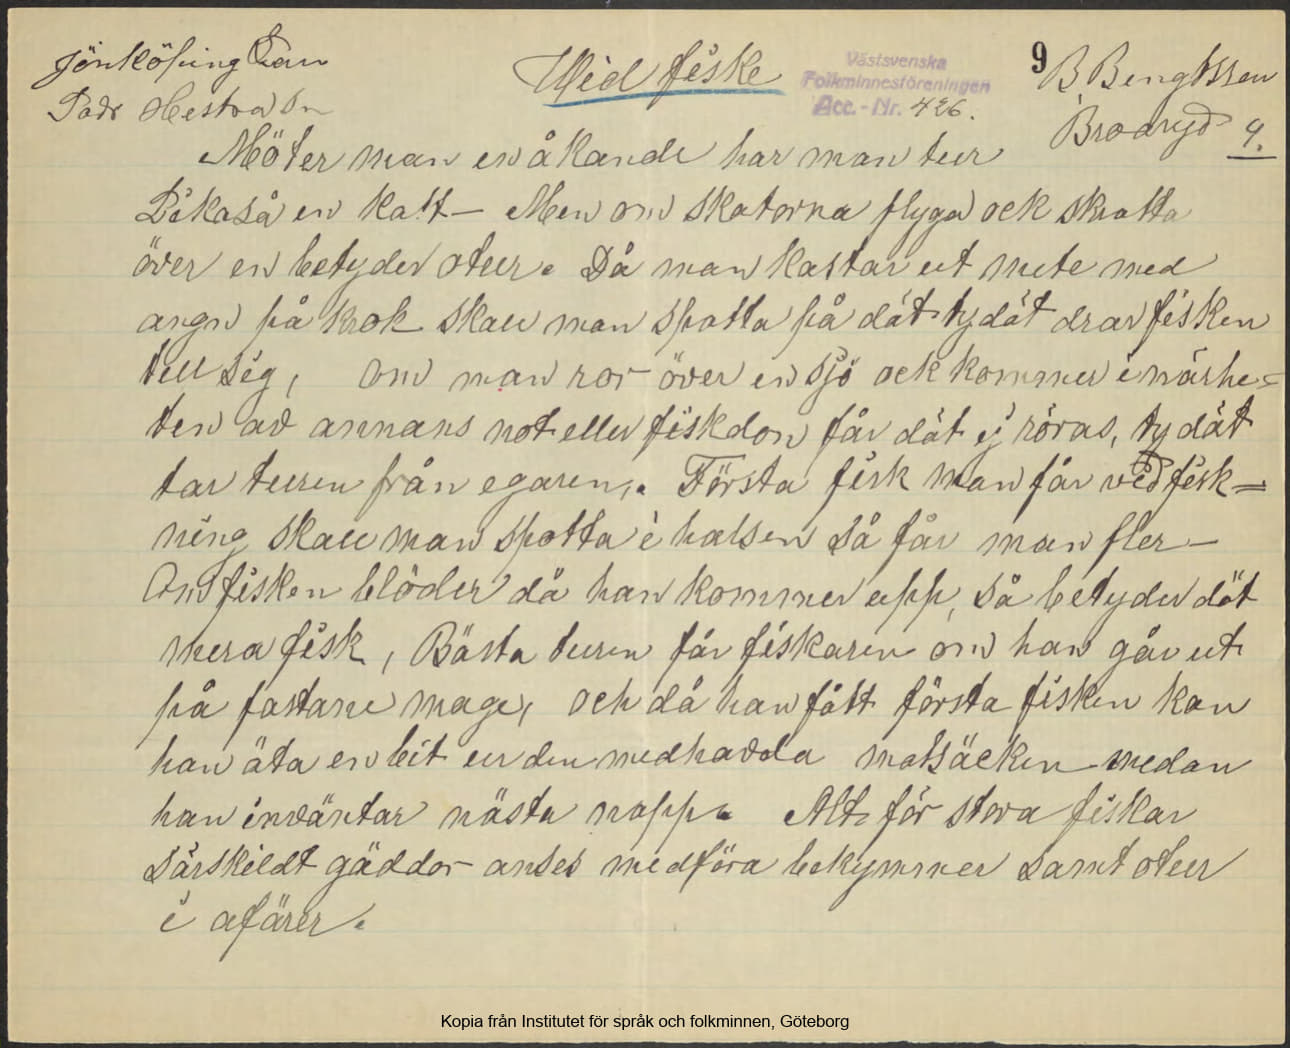 Jönköping Län
Södr Hestra Sn
Wid fiske
Västsvenska
Folkminnesföreningen
Acc.-Nr. 426.
9
B Bengtsson
Broaryd 4.
Möter man en åkande har man tur
Likaså en katt – Men om skatorna flyga ock skratta
över en betyder otur. Då man kastar ut mete med
angn på krok skall man spotta på dät ty dät drar fisken
till sig, om man ror över en sjö ock kommer i närhe=
ten av annans not eller fiskdon får dät ej röras, ty dät
tar turen från egaren,. Första fisk man får vid fisk=
ning skall man spotta i halsen så får man fler –
Om fisken blöder då han kommer upp, så betyder dät
mera fisk, Bästa turen får fiskaren om han går ut
på fastane mage, och då han fått första fisken kan
han äta en bit ur den medhavda matsäcken medan
han inväntar nästa napp. Alt för stora fiskar
särskildt gäddor anses medföra bekymmer samt otur
i afärer.
Kopia från Institutet för språk och folkminnen, Göteborg